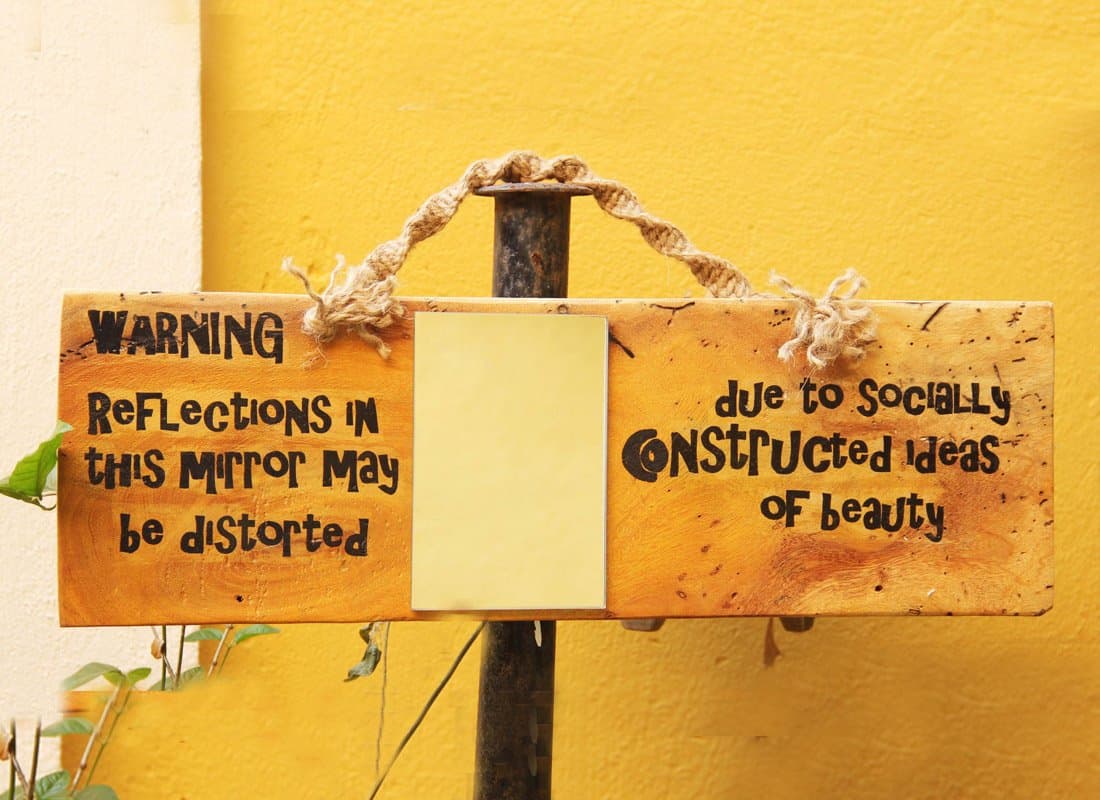 WARNING
ReFLectioNS iN
tHiS MirroR May
be distorted
due to SociaLLy
CoNStrUcted ideas
oF beauty